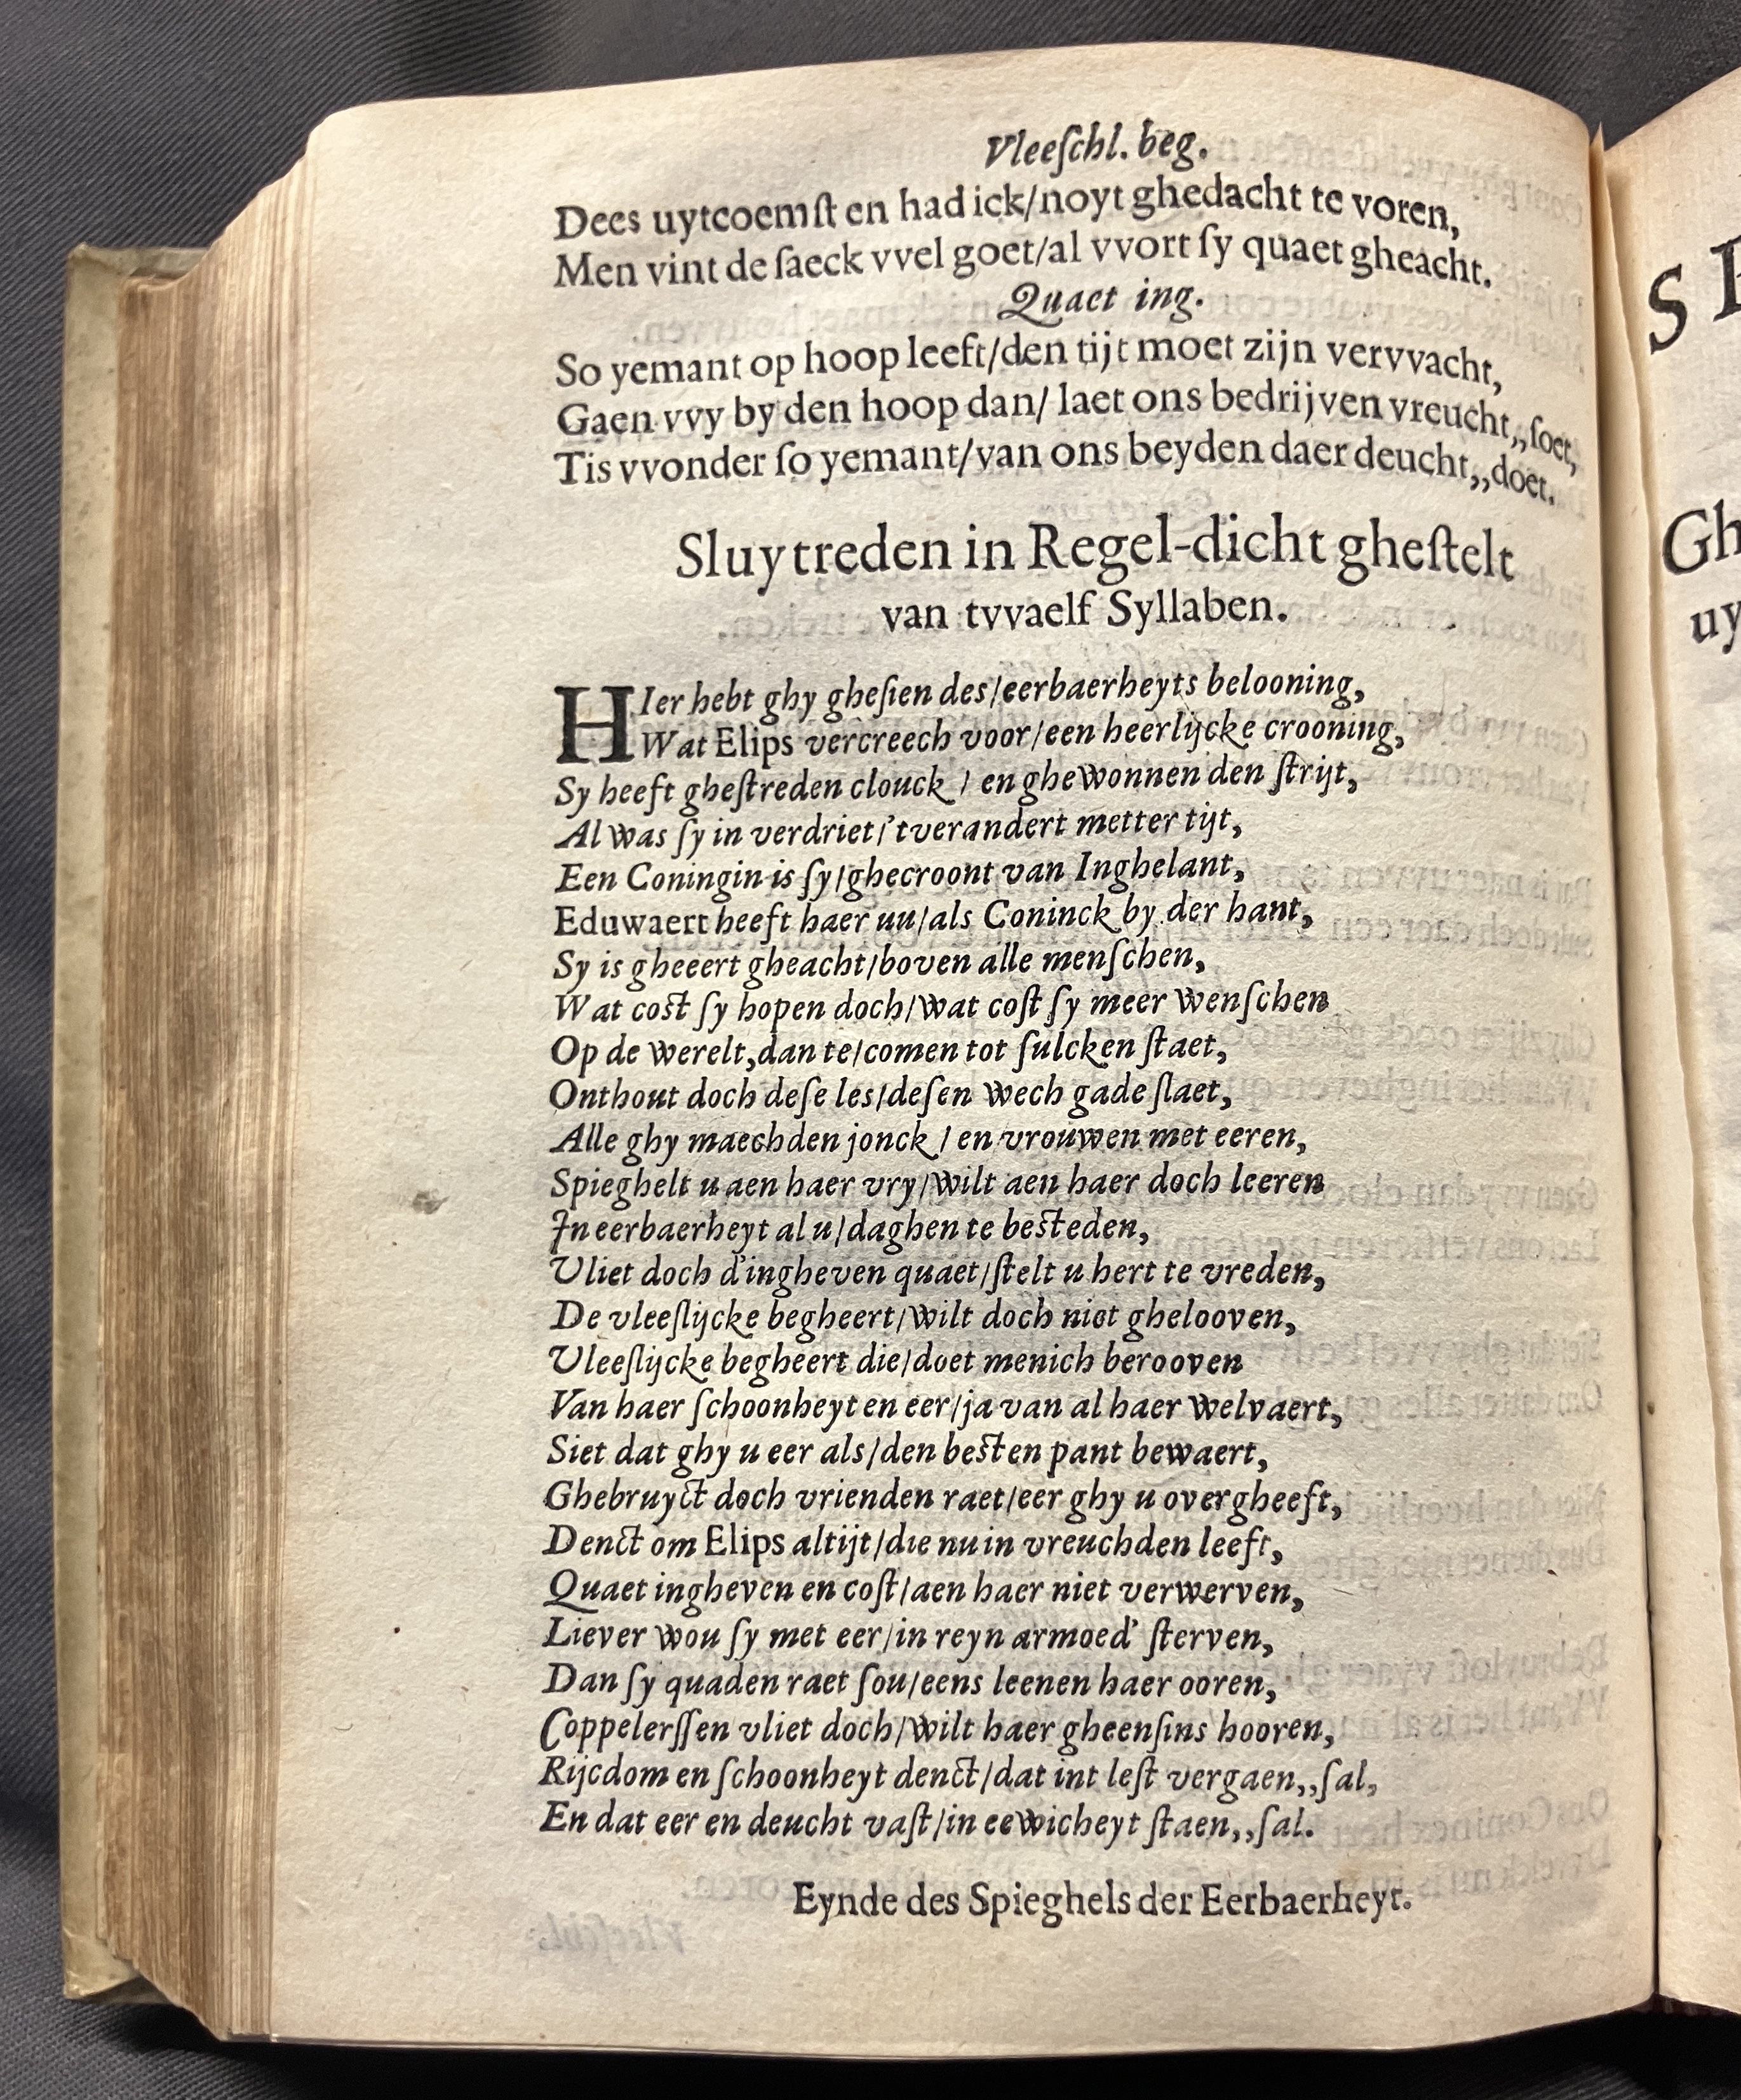 Vleeſchl. beg.
Dees uytcoemſt en had ick/noyt ghedacht te voren,
Men vint de ſaeck vvel goet/al vvort ſy quaet gheacht.
Quaet ing.
So yemant op hoop leeft/den tijt moet zijn vervvacht,
Gaen vvy by den hoop dan/ laet ons bedrijven vreucht,,ſoet,
Tis vvonder ſo yemant/van ons beyden daer deucht,,doet.
Sluytreden in Regel-dicht gheſtelt
van tvvaelf Syllaben.
HIer hebt ghy gheſien des/eerbaerheyts belooning,
Wat Elips vercreech voor/een heerlijcke crooning,
Sy heeft gheſtreden clouck / en ghewonnen den ſtrijt,
Al was ſy in verdriet/'tverandert metter tijt,
Een Coningin is ſy/ghecroont van Inghelant,
Eduwaert heeft haer uu/als Coninck by der hant,
Sy is gheeert gheacht/boven alle menſchen,
Wat coſt ſy hopen doch/wat coſt ſy meer wenſchen
Op de werelt,dan te/comen tot ſulcken ſtaet,
Onthout doch deſe les/deſen wech gade ſlaet,
Alle ghy maechden jonck / en vrouwen met eeren,
Spieghelt u aen haer vry/wilt aen haer doch leeren
In eerbaerheyt al u/daghen te beſteden,
Vliet doch d'ingheven quaet/ſtelt u hert te vreden,
De vleeſlijcke begheert/wilt doch niet ghelooven,
Vleeſlijcke begheert die/doet menich berooven
Van haer ſchoonheyt en eer/ja van al haer welvaert,
Siet dat ghy u eer als/den beſten pant bewaert,
Ghebruyct doch vrienden raet/eer ghy u overgheeft,
Denct om Elips altijt/die nu in vreuchden leeft,
Quaet ingheven en coſt/aen haer niet verwerven,
Liever wou ſy met eer/in reyn armoed' ſterven,
Dan ſy quaden raet ſou/eens leenen haer ooren,
Coppelerſſen vliet doch/wilt haer gheenſins hooren,
Rijcdom en ſchoonheyt denct/dat int leſt vergaen,,ſal,
En dat eer en deucht vaſt/in eewicheyt ſtaen,,ſal.
Eynde des Spieghels der Eerbaerheyt.
S
Gh
uy